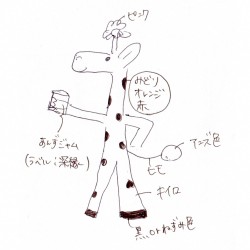 ピンク
みどり
オレンジ
赤
あんずジャム
(ラベル:深緑)
アンズ色
ヒモ
キイロ
黒 or ねずみ色